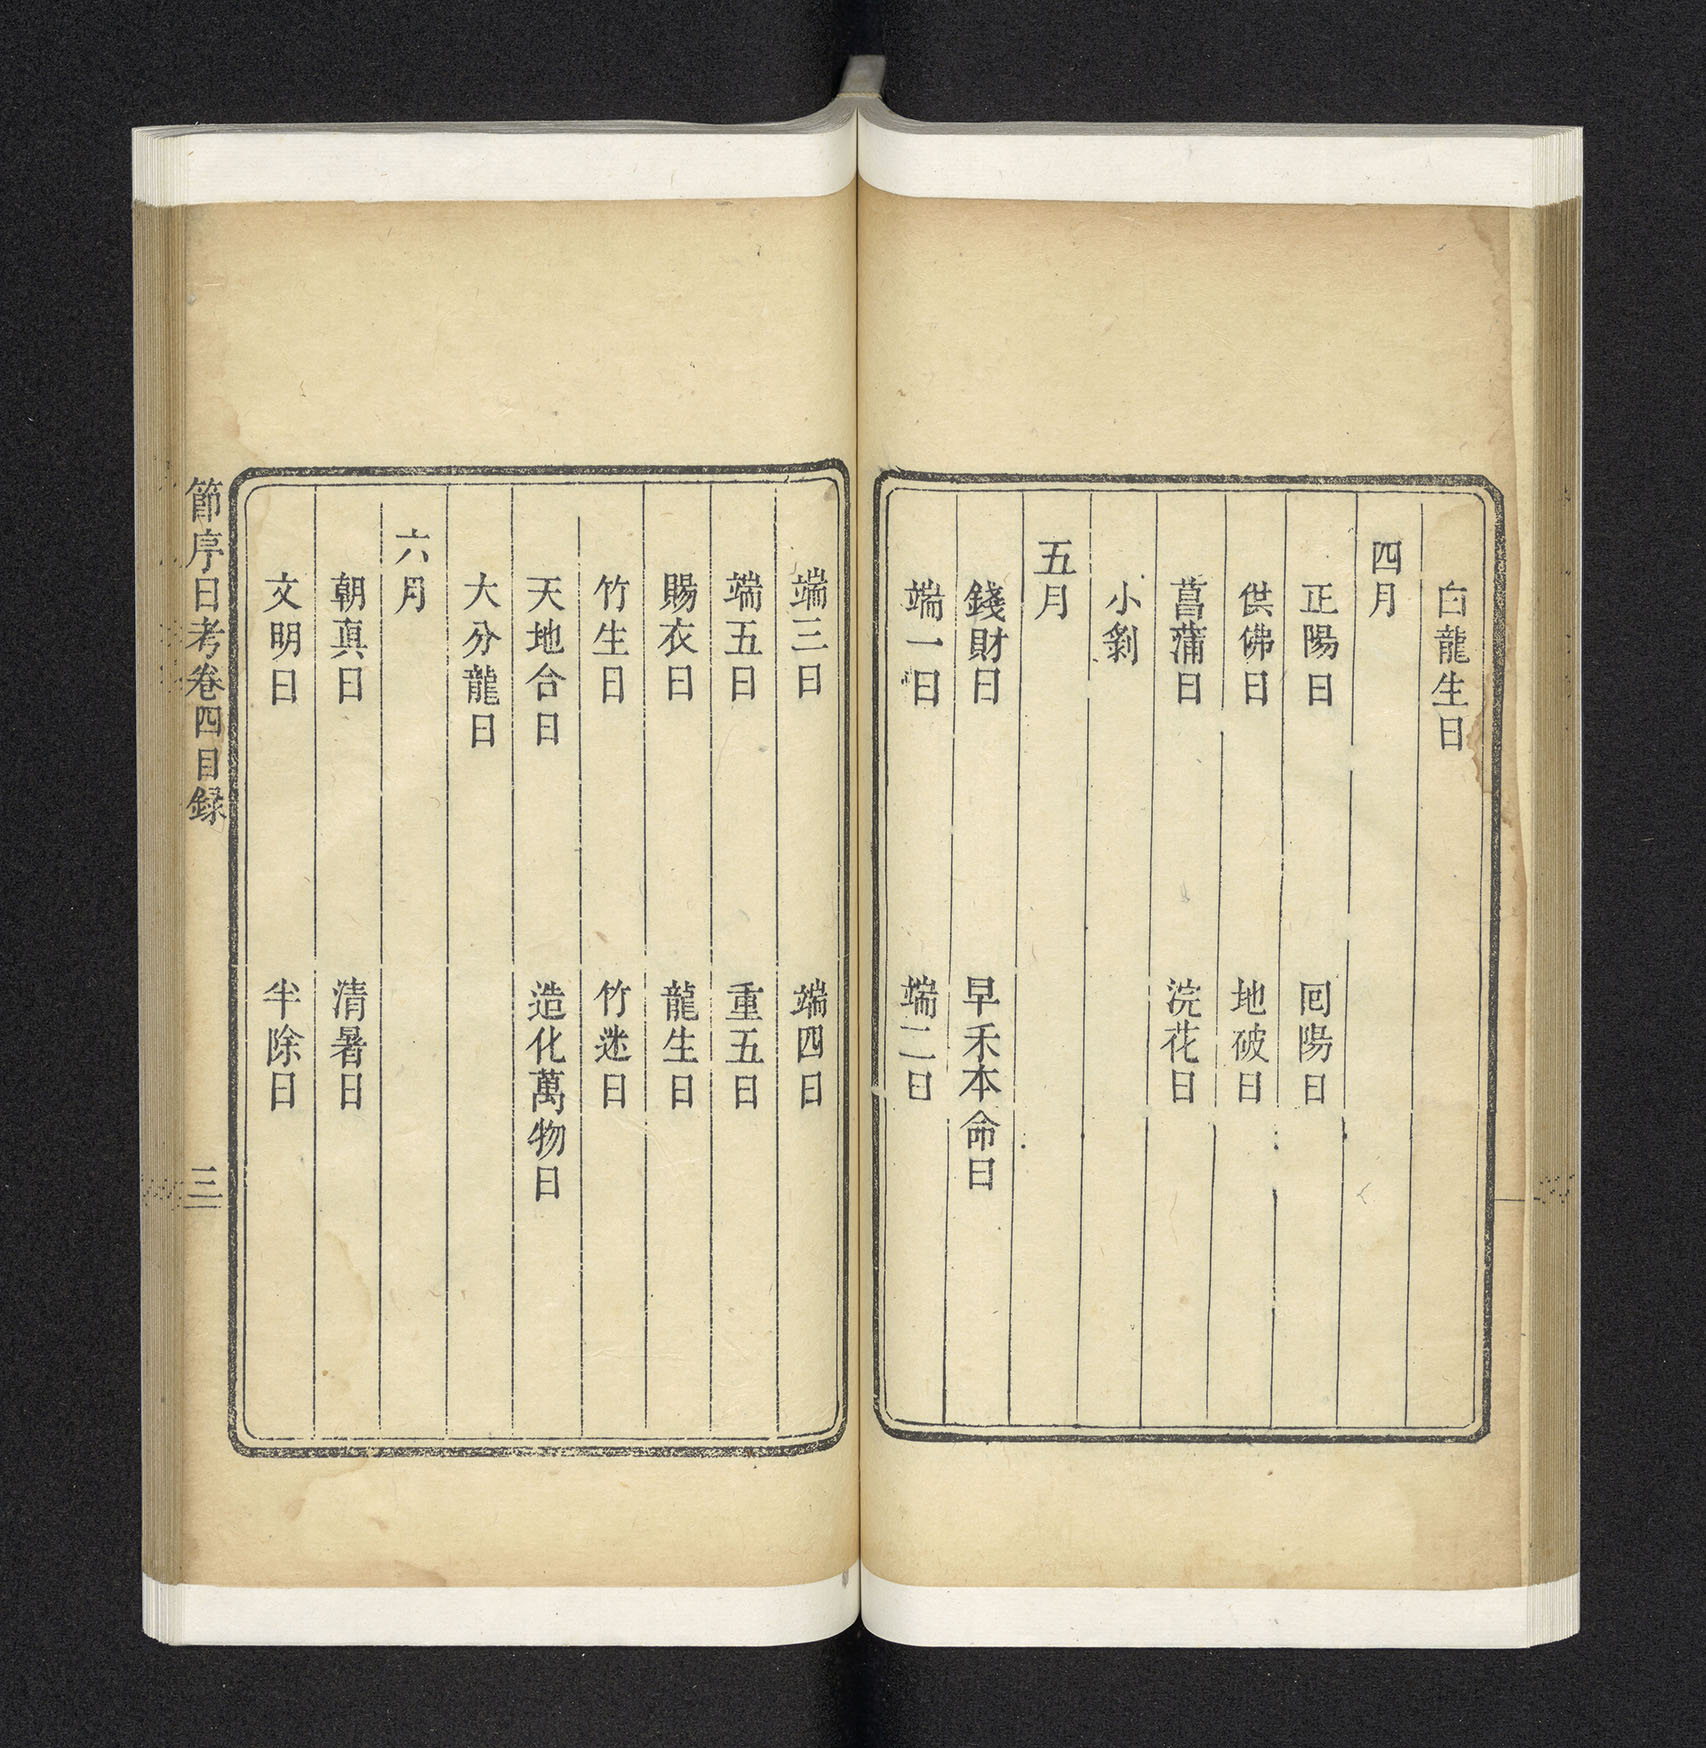 白龍生日
四月
正陽日　囘陽日
供佛日　地破日
菖蒲日　浣花日
小剝
五月
錢財日　早禾本命日
端一日　端二日
端三日　端四日
端五日　重五日
賜衣日　龍生日
竹生日　竹迷日
天地合日　造化萬物日
大分龍日
六月
朝真日　清暑日
文明日　半除日
節序日考卷四目録　三